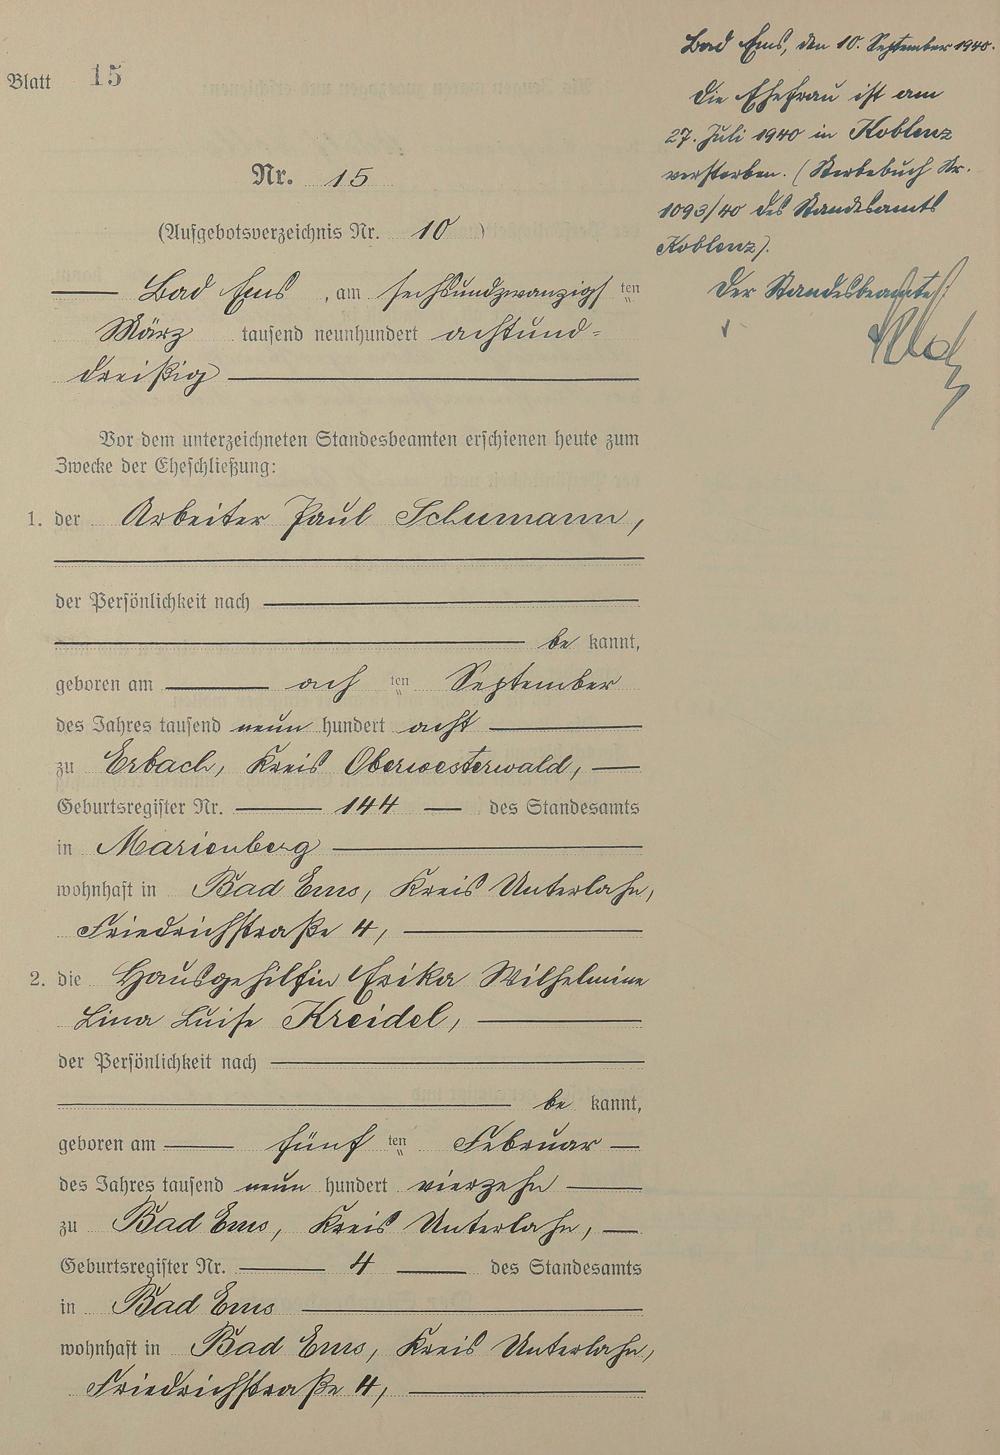 Blatt 15
Nr. 15
(Aufgebotsverzeichnis Nr. 10)
Bad Ems, am sechsundzwanzigsten
März tausend neunhundert achtund-
dreißig
Vor dem unterzeichneten Standesbeamten erschienen heute zum
Zwecke der Eheschließung:
1. der Arbeiter Paul Schumann,
der Persönlichkeit nach
be kannt,
geboren am achten September
des Jahres tausend neun hundert acht
zu Erbach, Kreis Oberwesterwald,
Geburtsregister Nr. 144 des Standesamts
in Marienberg
wohnhaft in Bad Ems, Kreis Unterlahn,
Friedrichstraße 4,
2. die Hausgehilfin Erika Wilhelmine
Lina Luise Kreidel,
der Persönlichkeit nach
be kannt,
geboren am fünften Februar
des Jahres tausend neun hundert vierzehn
zu Bad Ems, Kreis Unterlahn,
Geburtsregister Nr. 4 des Standesamts
in Bad Ems
wohnhaft in Bad Ems, Kreis Unterlahn,
Friedrichstraße 4,
Bad Ems, den 10. September 1940.
Die Ehefrau ist am
27. Juli 1940 in Koblenz
verstorben. (Sterbebuch Nr.
1093/40 des Standesamts
Koblenz).
Der Standesbeamte: